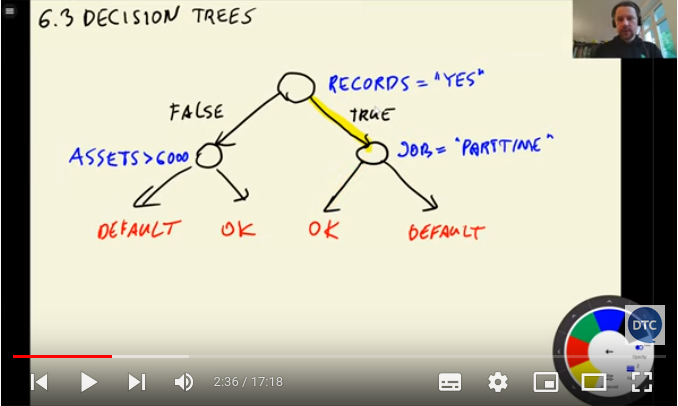 6.3 DECISION TREES
RECORDS = "YES"
FALSE
TRUE
ASSETS > 6000
JOB = "PARTTIME"
DEFAULT
OK
OK
DEFAULT
DTC
2:36 / 17:18